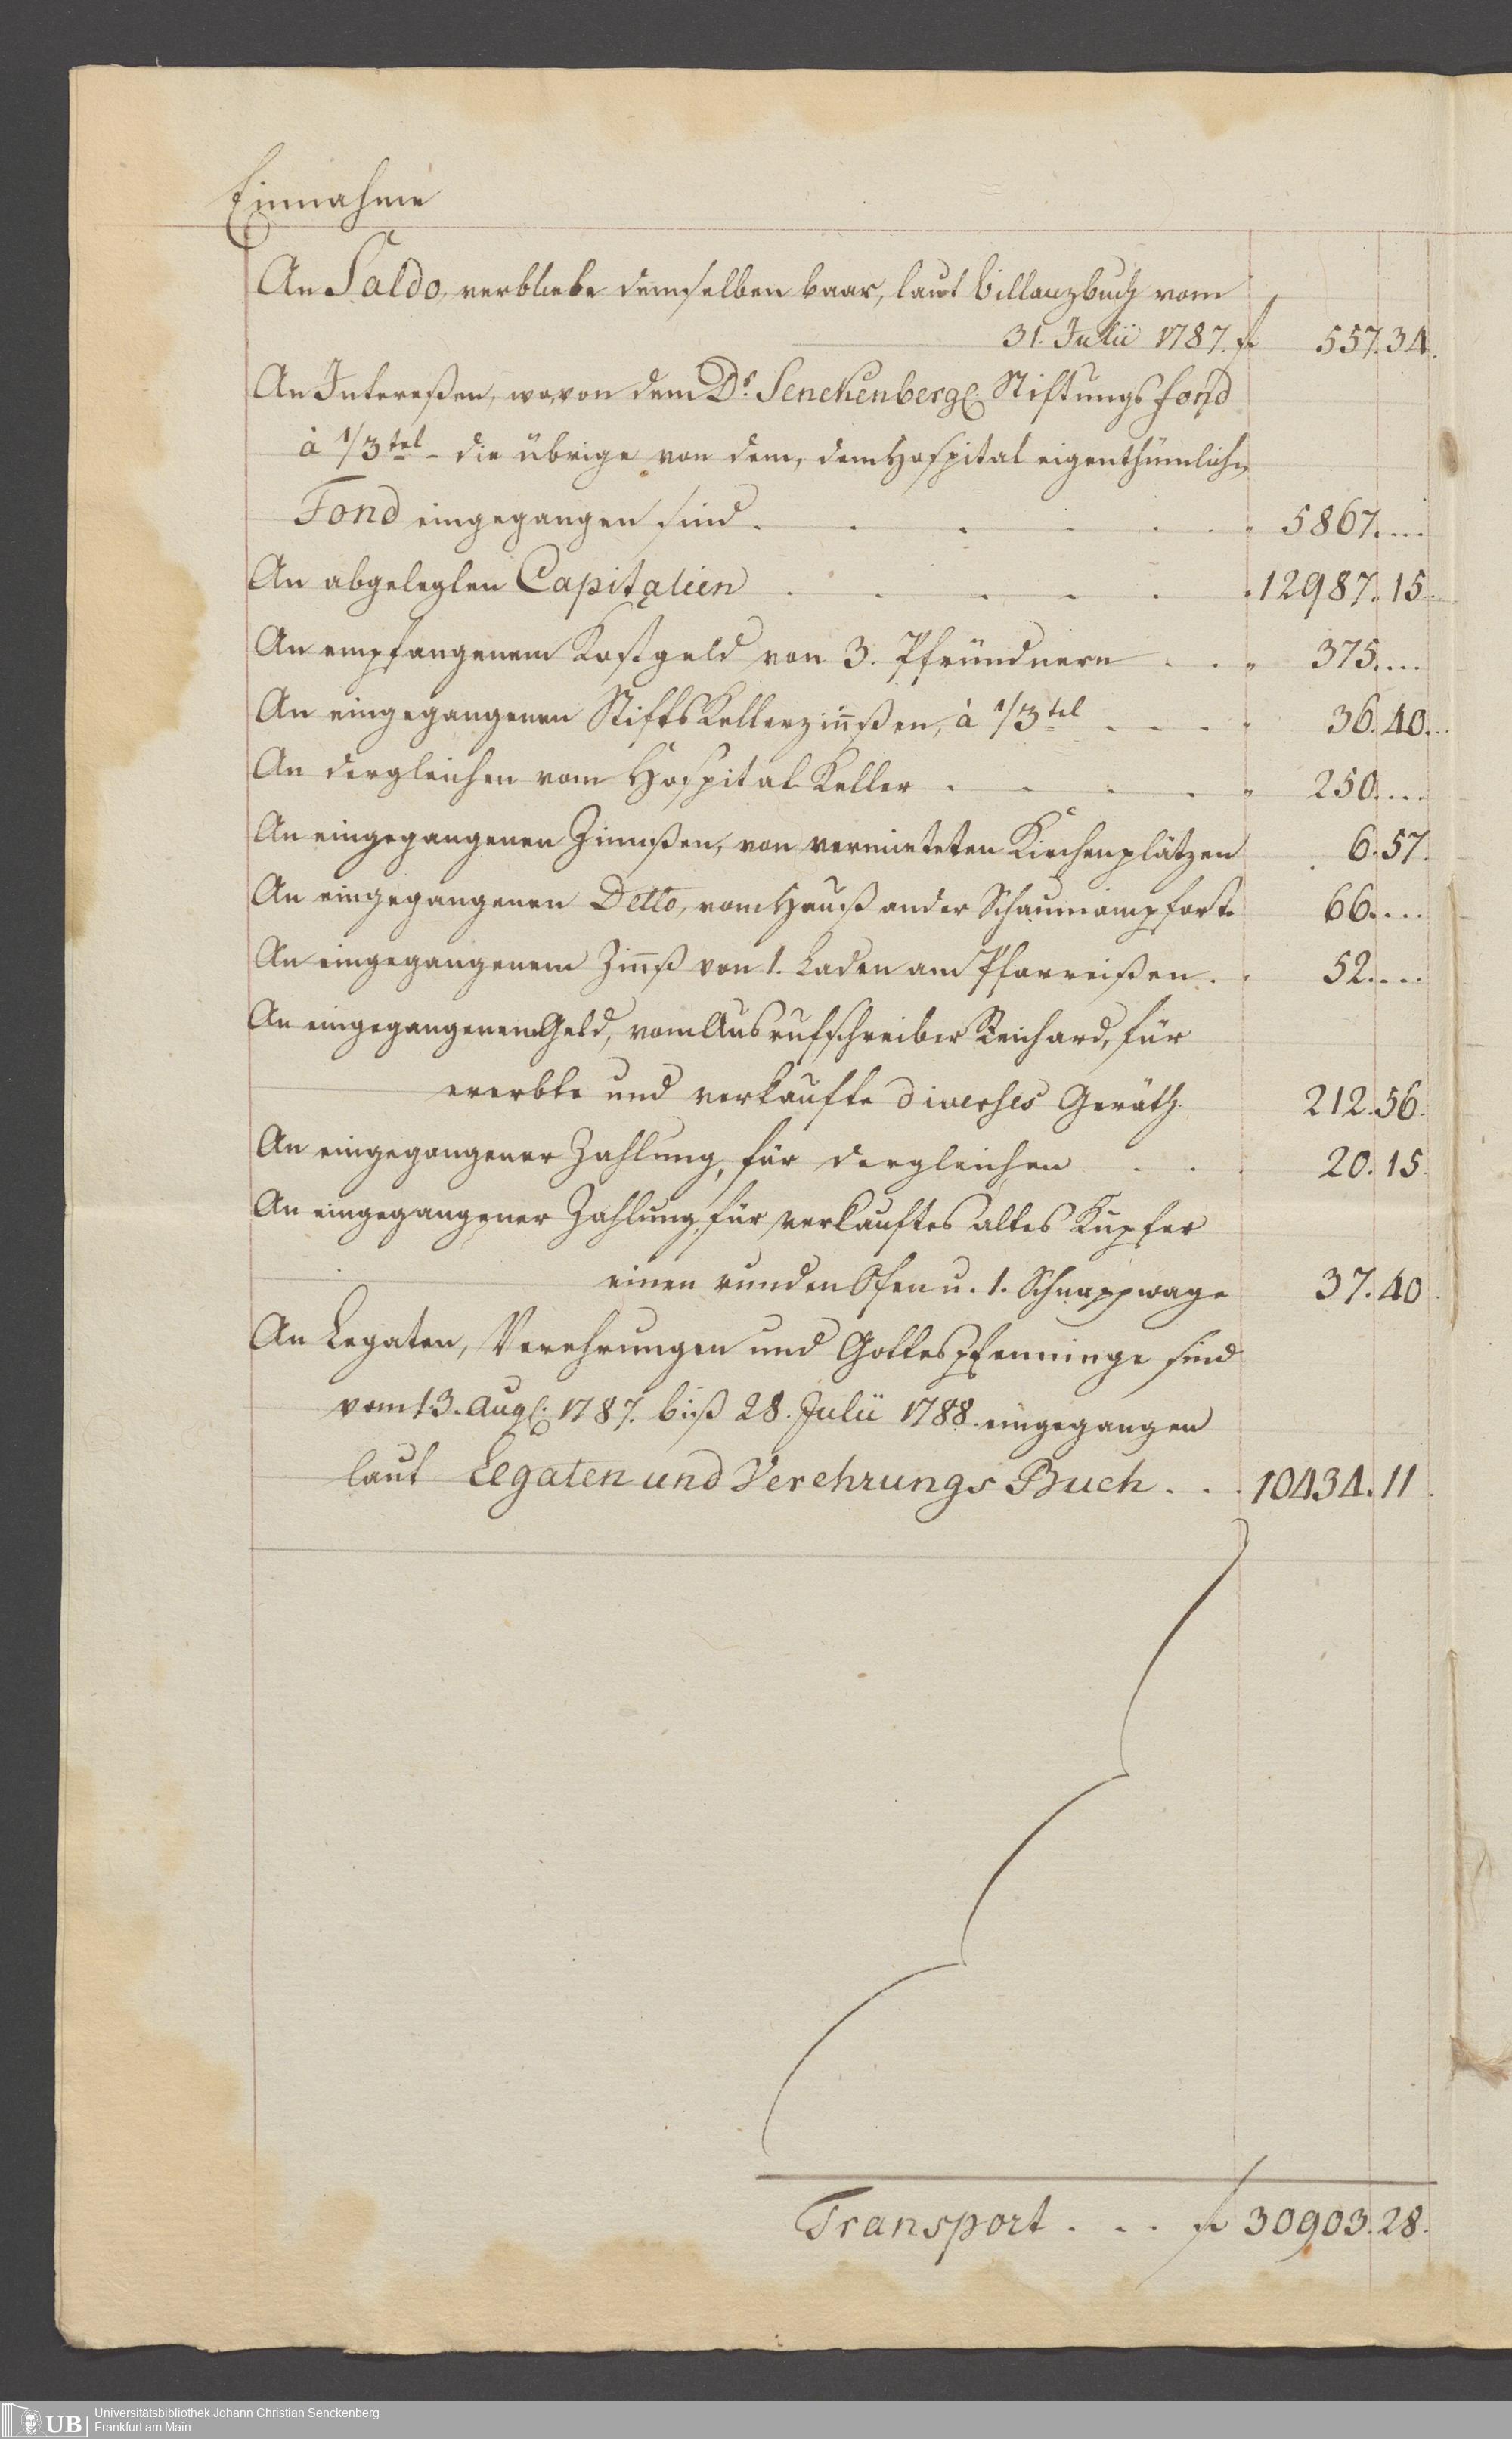 Einnahme
An Saldo, verbliebe demselben baar, laut Billanzbuch vom
31. Julii 1787. f 557. 34.
An Intereßen, wovon dem Dr. Senckenbergl. Stiftungs fond
à 1/3tel - die übrige von dem, dem Hospital eigenthümlichen
Fond eingegangen sind . . . . . . 5867. ...
An abgelegten Capitalien . . . . . . 12987. 15.
An empfangenem Kostgeld von 3. Pfründnern . . . 375. ...
An eingegangenen Stifts Kellerzinnßen, à 1/3tel . . . . 36. 40.
An dergleichen vom Hospital Keller . . . . . 250. ...
An eingegangenen Zinnßen, von vermieteten Kirchenplätzen 6. 57.
An eingegangenen Detto, vom Hauß an der Schaumainpforte 66. ...
An eingegangenem Zinnß von 1. Laden am Pfarreisen . . 52. ...
An eingegangenem Geld, vom Ausrufschreiber Reichard, für
ererbte und verkaufte diverses Geräth. 212. 56.
An eingegangener Zahlung, für dergleichen . . . 20. 15.
An eingegangener Zahlung, für verkauftes altes Kupfer
einen runden Ofen u. 1. Schnappwage 37. 40.
An Legaten, Verehrungen und Gottespfenninge sind
vom 13. Augl: 1787. biß 28. Julii 1788. eingegangen
laut Legaten und Verehrungs Buch . . . 10434. 11.
Transport . . . f 30903. 28.
UB Universitätsbibliothek Johann Christian Senckenberg
Frankfurt am Main